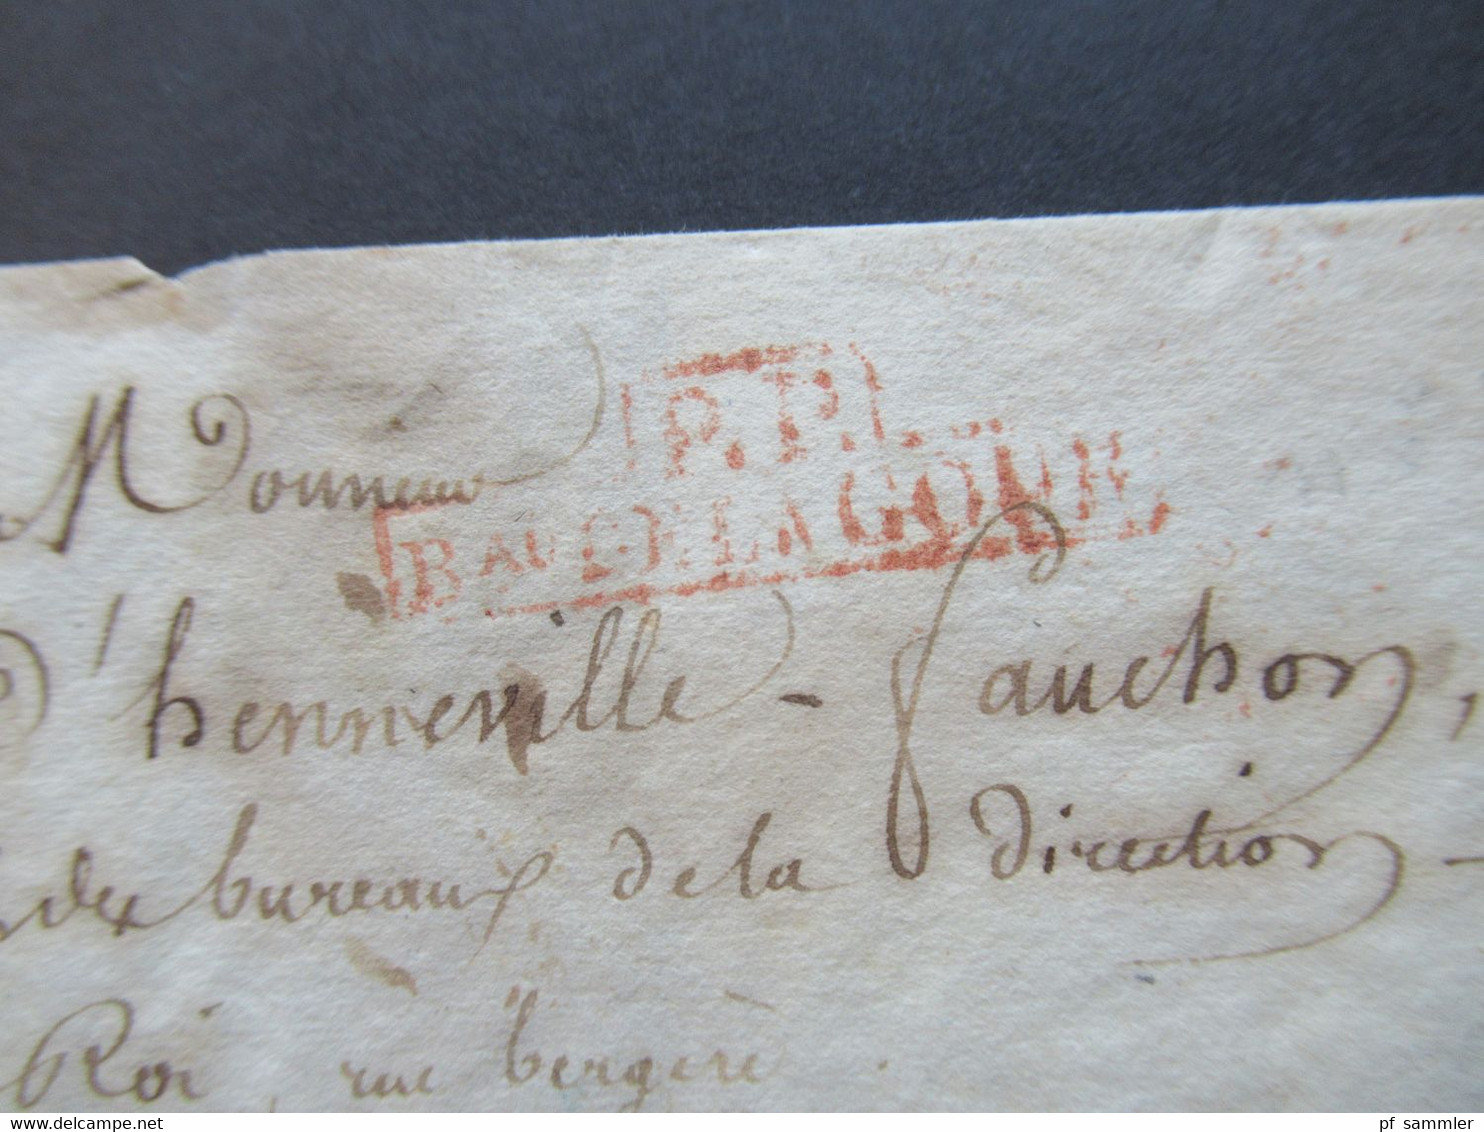 Monsieur
P.P.
Bau DE LA COUR
D'henneville - fauchon,
bureaux de la direction
Roi, rue bergère
www.delcampe.net
pf_sammler